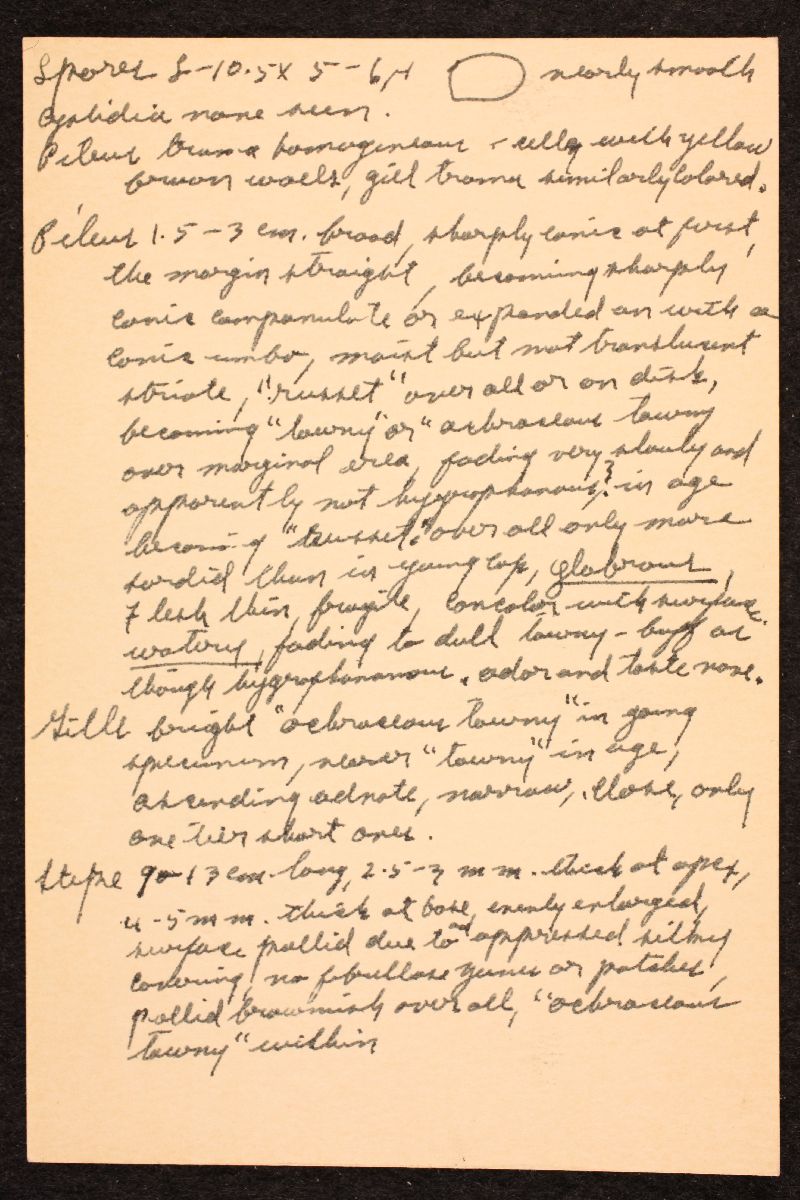 Spores 8-10.5 x 5-6 µ nearly smooth
Cystidia none seen.
Pileus trama homogeneous - cells with yellow
brown walls, gill trama similarly colored.
Pileus 1.5-3 cm. broad, sharply conic at first,
the margin straight, becoming sharply
conic campanulate or expanded an with a
conic umbo, moist but not translucent
striate, "russet" over all or on disk,
becoming "tawny" or "ochraceous tawny
over marginal area, fading very slowly and
apparently not hygrophanous, ? in age
becoming "russet" over all only more
sordid than in young cap, glabrous,
Flesh thin, fragile, concolor with surface
watery, fading to dull tawny-buff as
though hygrophanous. odor and taste none.
Gills bright "ochraceous tawny" in young
specimens, nearer "tawny" in age,
ascending adnate, narrow, close, only
one tier short ones.
Stipe 9-13 cm long, 2.5-3 mm. thick at apex,
4-5 mm. thick at base, evenly enlarged,
surface pallid due to appressed silky
covering, no fibrillose zones or patches,
pallid brownish over all, "ochraceous
tawny" within